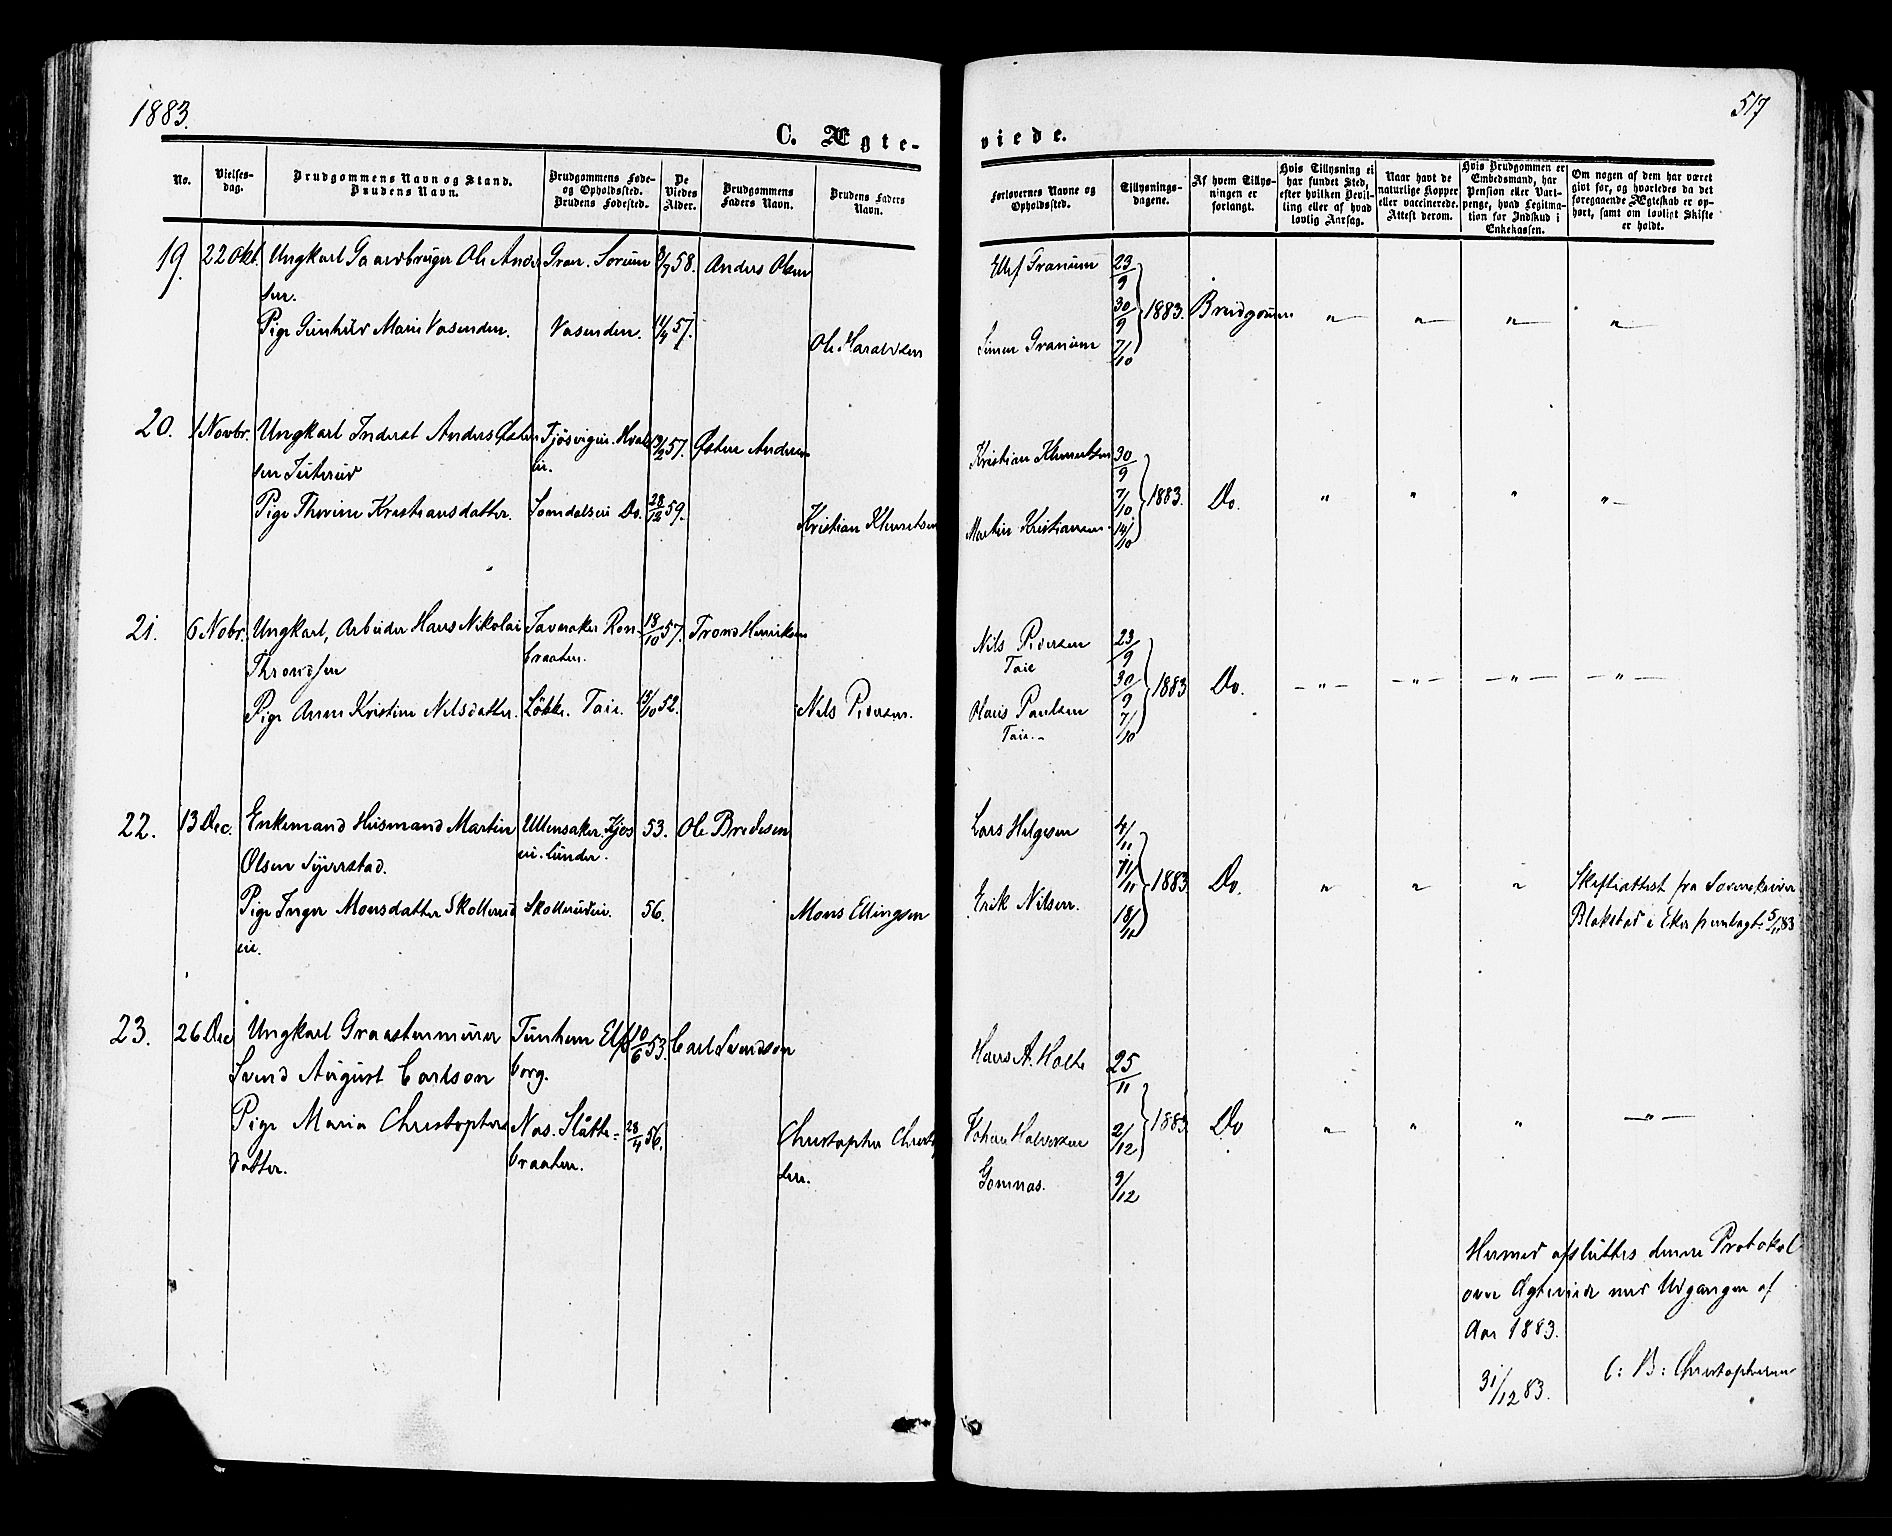 1883.
517
C. Ægte-
viede.
No.
Vielses-
dag.
Brudgommens Navn og Stand.
Brudens Navn.
Brudgommens Føde-
og Opholdssted.
Brudens Fødested.
De
Viedes
Alder.
Brudgommens
Faders Navn.
Brudens Faders
Navn.
Forlovernes Navne og
Opholdssted.
Tillysnings-
dagene.
Af hvem Tillys-
ningen er
forlangt.
Hvis Tillysning ei
har fundet Sted,
efter hvilken Bevil-
ling eller af hvad
lovlig Aarsag.
Naar havt de
naturlige Kopper
eller vaccinerede.
Attest derom.
Hvis Brudgommen er
Embedsmand, har
Pension eller Vart-
penge, hvad Legitma-
tion for Indskud i
Enkekassen.
Om nogen af dem har været
givt før, og hvorledes da det
foregaaende Ægteskab er op-
hørt, samt om lovligt Skifte
er holdt.
19. 22 Okt. Ungkarl Gaardbruger Ole Ander Gran. Sørum 8/7 58. Anders Olsen
sen.
Pige Gunhild Marie Vasenden. Vasenden. 11/4 57.
Ole Haraldsen
Ellef Granum 23/9
30/9 1883. Brudgommen " " " "
Simen Granum 7/10
20. 1 Novbr. Ungkarl Inderst Anders Østen Tjøsvigen. Hval 13/2 57. Østen Andersen
sen
ei.
Pige Thorine Kristiansdatter. Do. 28/12 59.
Kristian Klemetsen
Kristian Klemetsen 30/9
7/10 1883. Do. " " " "
Martin Kristiansen. 14/10
21. 6 Nobr. Ungkarl, Arbeider Hans Nikolai 18/10 57. Trond Henriksen
Throndsen
braaten.
Pige Anne Kristine Nilsdatter. Løkke. Taie. 13/10 52.
Nils Pedersen.
Nils Pedersen 23/9
Taie
30/9 1883 Do. " " " "
Hans Paulsen 7/10
Taie.
22. 13 Dec. Enkemand Husmand Martin Ullensaker. Kjos 53. Ole Bredesen
Olsen
ei. Lunder.
Pige Inger Monsdatter Skollerud Skollerudei. 56.
ei.
Mons Ellingsen
Lars Helgesen 4/11
11/11 1883 Do. " " "
Erik Nilsen. 18/11
Skifteattest fra
Blakstad i Eker fremlagt. 5/11 83
23. 26 Dec Ungkarl Graastensmurer Tunhem Elfs 10/6 53. Carl Svendson
Svend August Carlson
borg.
Pige Maria Christophers Næs. Slåtte- 28/4 56.
datter.
braaten.
Christopher Christop
sen.
Hans A. Holte 25/11
Johan Halvorsen 2/12 1883 Do " " " "
Gomnæs. 9/12
Hermed afsluttes denne Protokol
over Ægteviede med Udgangen af
Aar 1883.
31/12 83. C: B: Christophersen